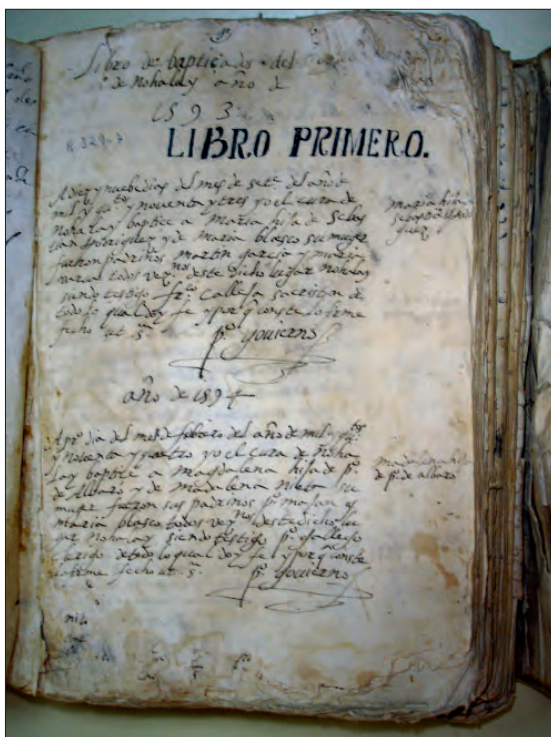 Libro de bapticados del
de Nohalas año de
1593
LIBRO PRIMERO.
A diez y nuebe dias del mes de setᵉ. del año de
mil y quiᵒˢ y noventa y tres yo el cura de
Nohalas baptice a maria hija de Sebas
tian y de maria blasco su muger
fueron padrinos martin garcia y maria
todos vezᵒˢ deste dicho lugar Nohalas
siendo testigo frᶜᵒ Calleja sacristan de
todo lo qual doy fe y porq̄ conste lo firme
fecho ut sᵃ.
pᵒ govierno
maria hija de
sebastian
año de 1594
A pʳᵒ dia del mes de febrero del año de mil y quiᵒˢ
y noventa y quatro yo el cura de Noha
las baptice a magdalena hija de pᵒ
de Albaro y de madalena nieto su
muger fueron sus padrinos pᵒ y
maria blasco todos vezᵒˢ deste dicho lu
gar Nohalas siendo testigo pᵒ calleja
clerigo de todo lo qual doy fe y porq̄ conste
lo firme fecho ut sᵃ.
pᵒ govierno
madalena hija
de pᵒ de albaro